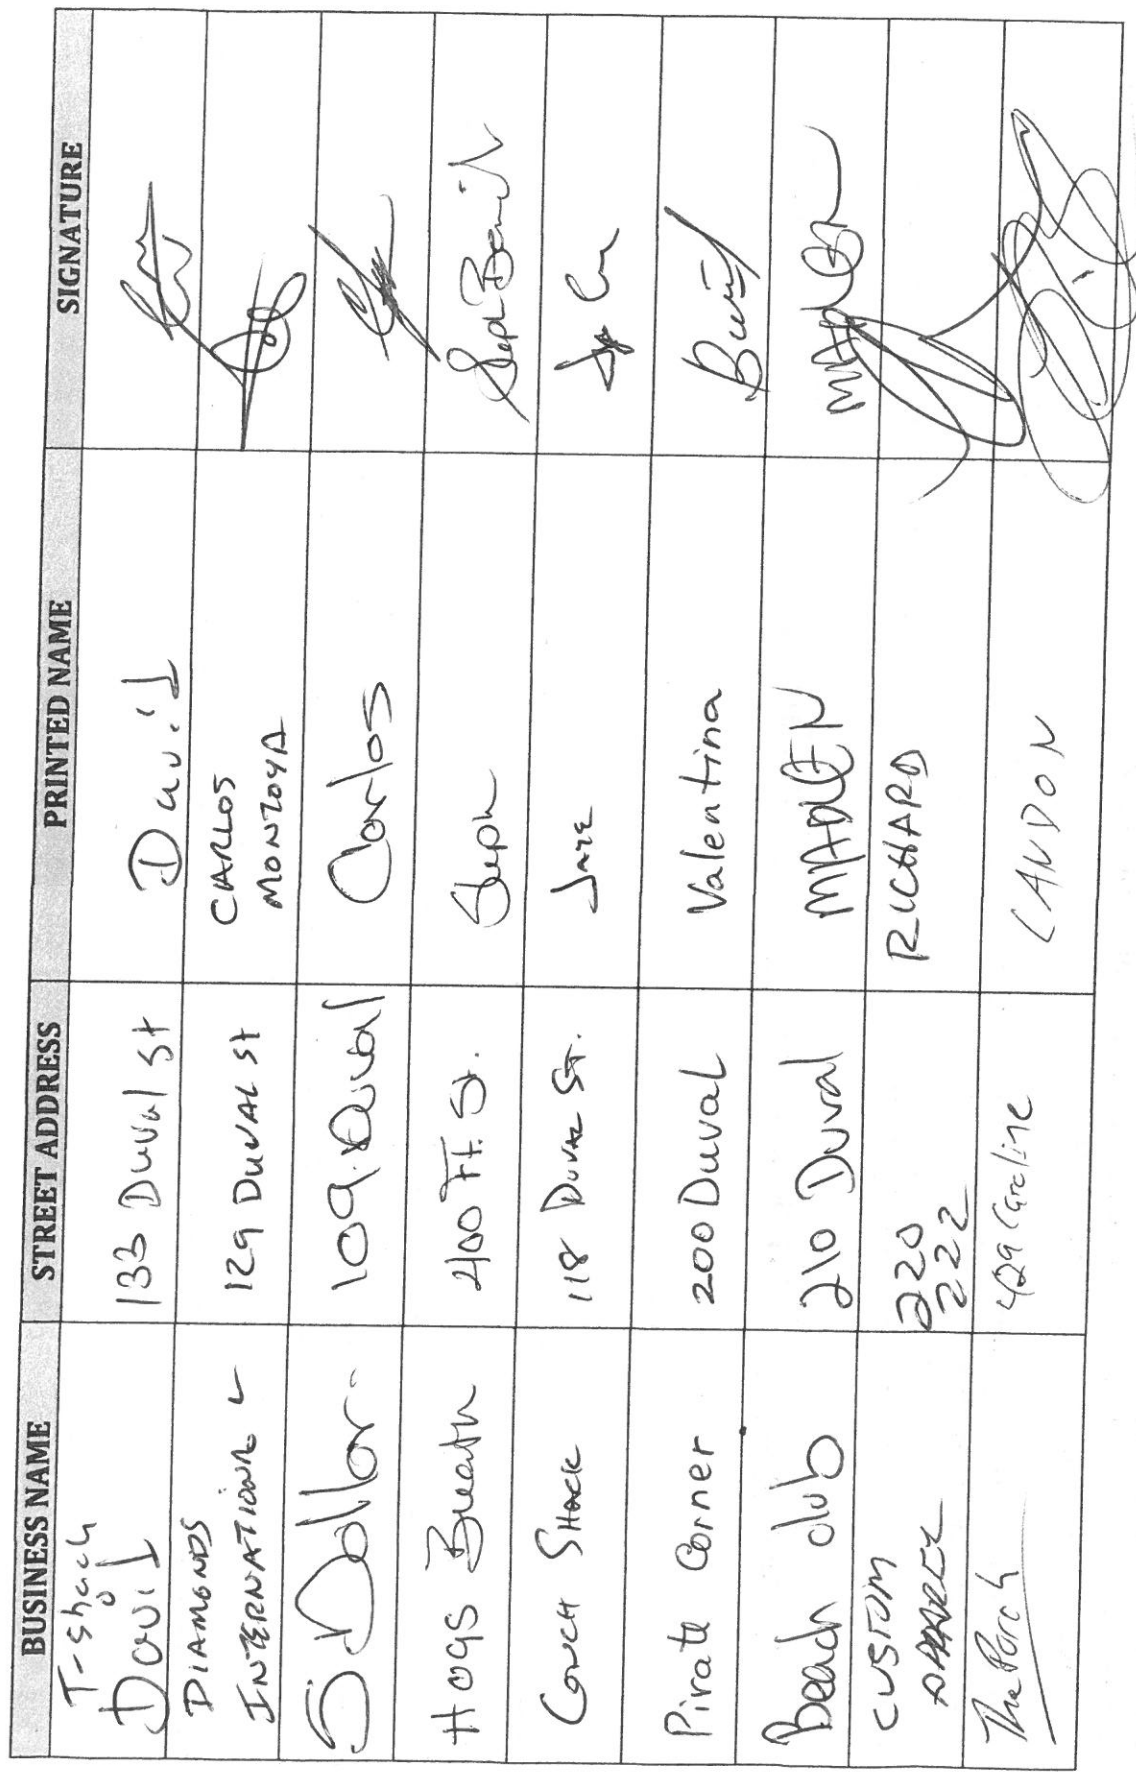 BUSINESS NAME STREET ADDRESS PRINTED NAME SIGNATURE
T-Shack
David 133 Duval St David
DIAMONDS
INTERNATIONAL 129 DUVAL St CARLOS
MONTOYA
5 Dollar 109 Duval Carlos
Hogs Breath 400 Ft. St. Steph
CONCH SHACK 118 DUVAL ST.
Pirate Corner 200 Duval Valentina
Beach club 210 Duval MADLEN MADLEN
CUSTOM
APPAREL 220
222 RICHARD
The Porch 429 Caroline LANDON